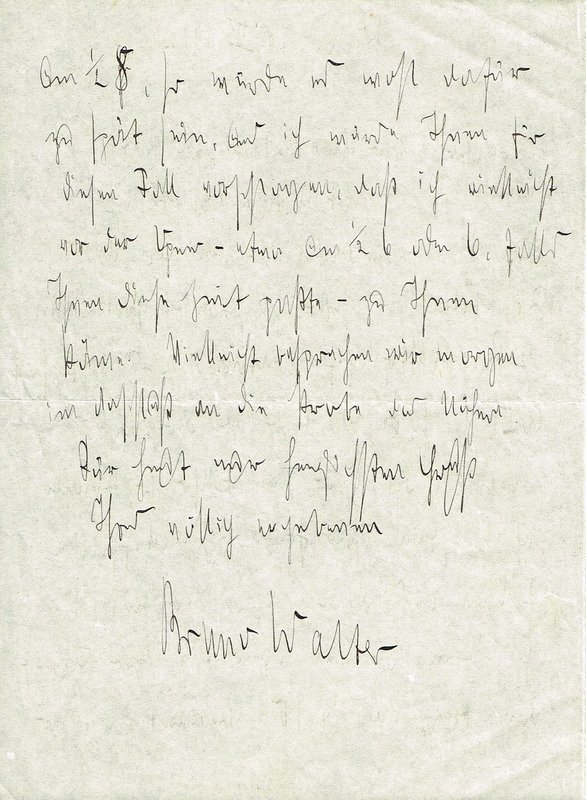 um ½ 8, so würde es wohl dafür
zu spät sein, und ich würde Ihnen für
diesen Fall vorschlagen, daß ich vielleicht
vor der Oper – etwa um ½ 6 oder 6, falls
Ihnen diese Zeit paßte – zu Ihnen
käme. Vielleicht besprechen wir morgen
im Anschluß an die Probe das Nähere.
Für heut nur herzlichsten Gruß
Ihres völlig ergebenen
Bruno Walter